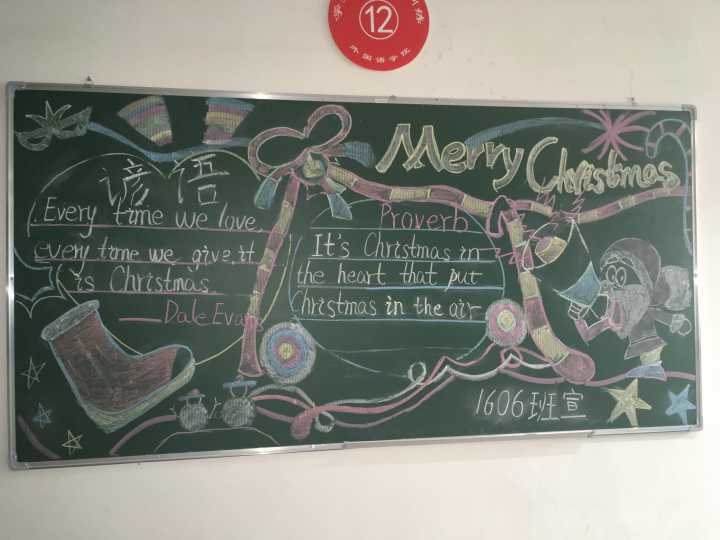 12
外国语学校
Merry Christmas
谚语
Every time we love,
every time we give, it
is Christmas.
— Dale Evans
Proverb
It's Christmas in
the heart that put
Christmas in the air
1606班宣